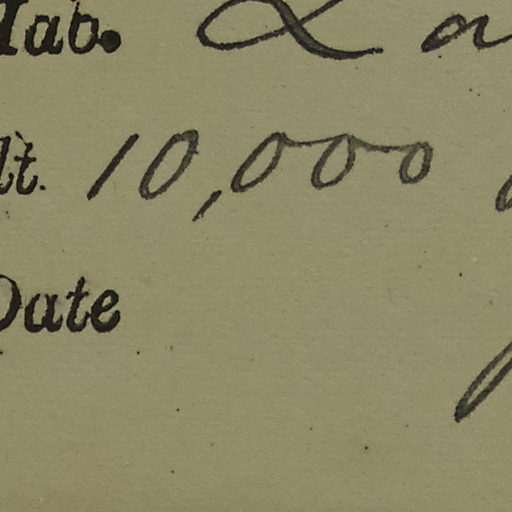 Hab. La
lt. 10,000
Date